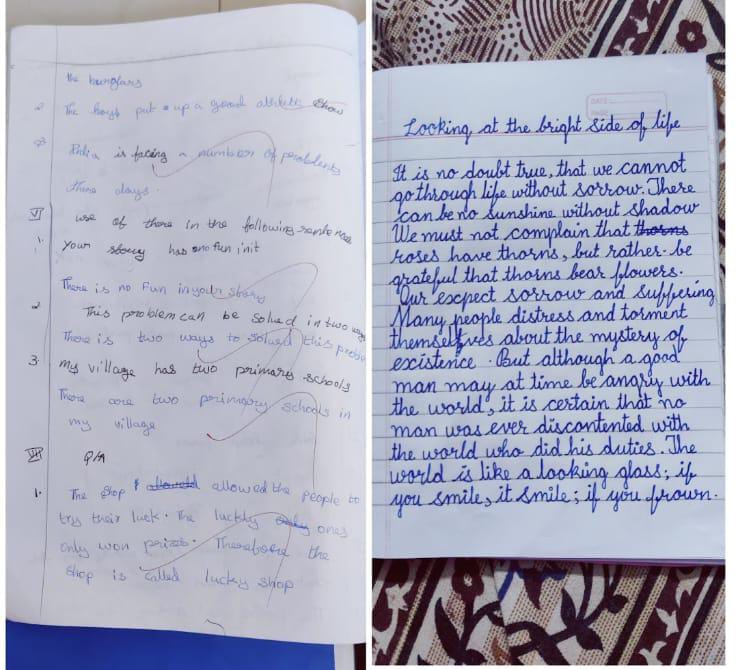 the burglars
The boys put up a good athletic show
India is facing a number of problems
these days.
VI use of there in the following sentences
1. Your story has no fun in it
There is no Fun in your story
2 This problem can be solved in two ways
There is two ways to solued this proble
3. My village has two primary schools
There are two primary schools in
my village
VII Q/A
1. The shop allowed the people to
try their luck. The luckly ones
only won prizes. Therefore the
shop is called lucky shop
DATE:
Looking at the bright side of life
It is no doubt true, that we cannot
go through life without sorrow. There
can be no sunshine without shadow
We must not complain that thorns
roses have thorns, but rather be
grateful that thorns bear flowers.
Our excpect sorrow and suffering
Many people distress and torment
themselves about the mystery of
existence. But although a good
man may at time be angry with
the world, it is certain that no
man was ever discontented with
the world who did his duties. The
world is like a looking glass; if
you smile, it smile; if you frown.